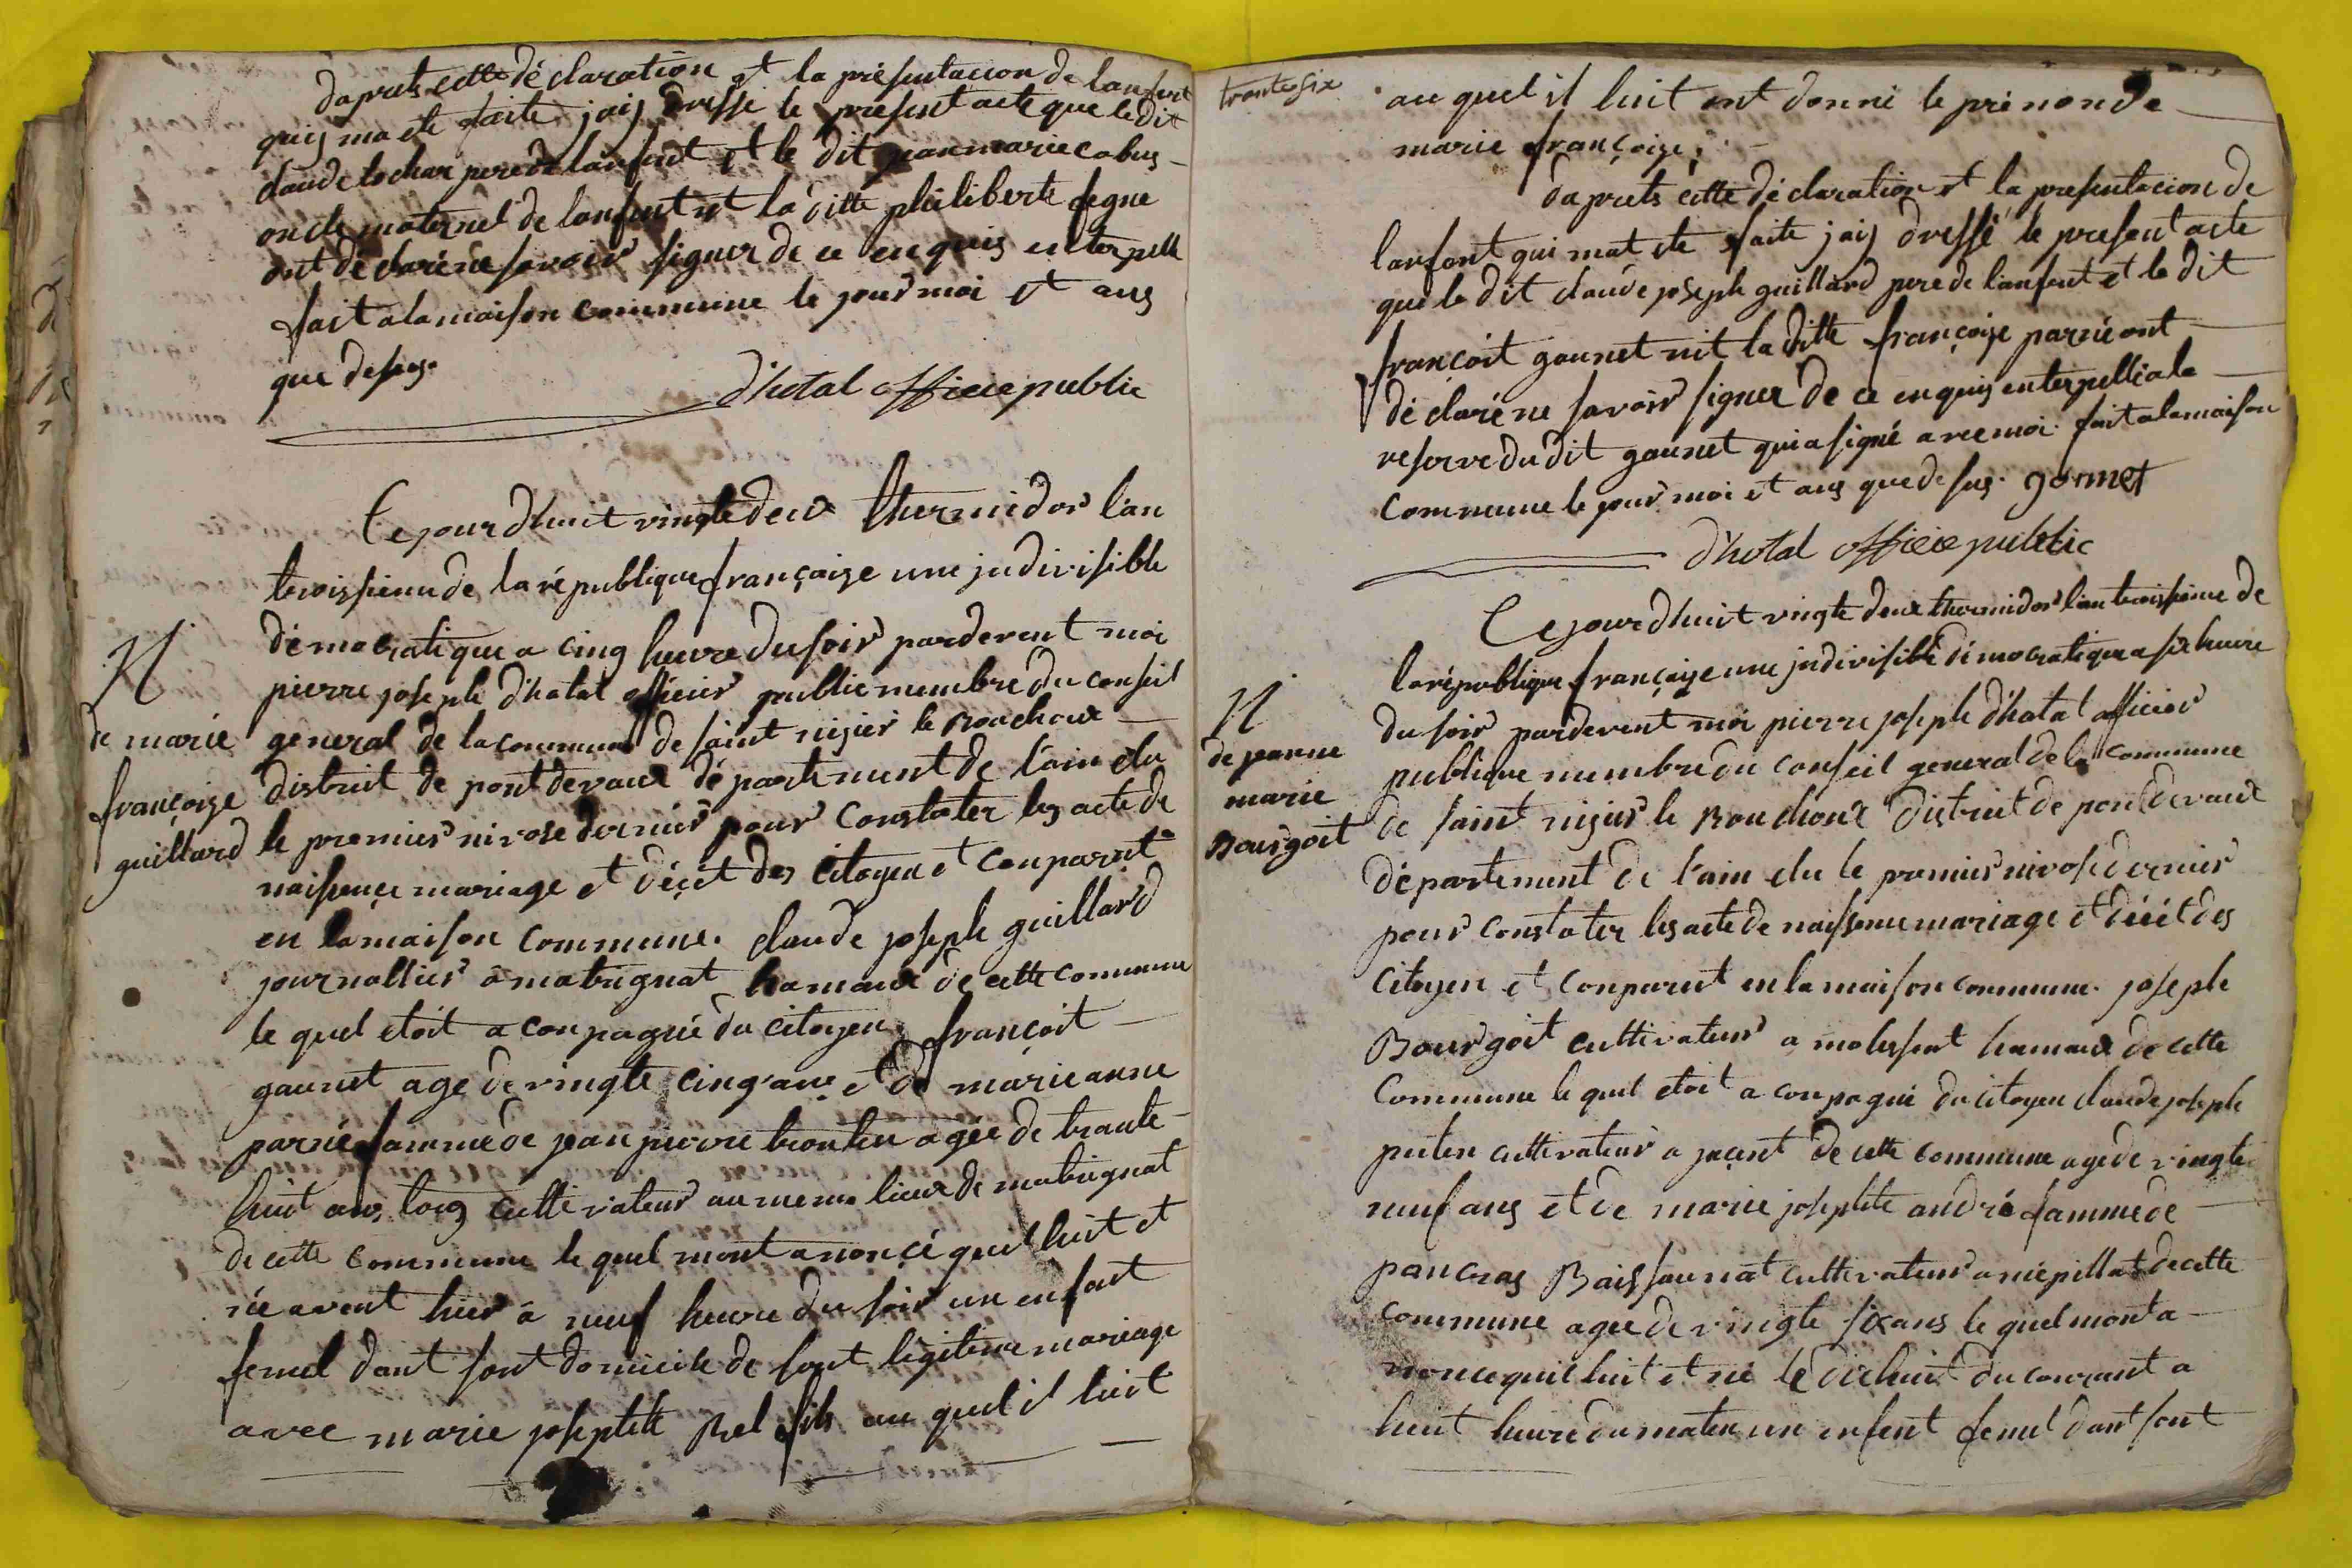 daprets cette déclaration et la présentacion de lanfent
quij ma ete faite jaij dressé le présent acte que le dit
claude lochar pere de lanfent et le dit jean marie cabus
oncle maternel de lanfent et la ditte philiberte fegne
ont déclaré ne savoir signer de ce enquis enterpelle
fait a la maison commune le jour moi et ans
que desus.
d'hotal officie public
Ce jour dhuit vingte deux thermidor l'an
troissieme de la république françaize une jndivisible
démocratique a cinq heure du soir parderent moi
pierre joseph dhotal officier public membre du conseil
general de la commune de saint nizier le Bouchoux
district de pont devaux département de l'ain elu
le premier nivose dernier pour constater les acte de
naissance mariage et décet des citoyen et conparut
en la maison commune. claude joseph guillard
journallier a matrignat hamaux de cette commune
le quel etoit a conpagné du citoyen françoit
gaunet age de vingte cinq ans et de marie anne
parrié famme de jean pierre broulien agée de trante
huit ans tous cultivateur au meme lieux de matrignat
de cette commune le quel mont anoncé quil luit et
née avent hier à neuf heure du soir un enfant
femel dant sont domicile de sont légitime mariage
avec marie josephte Bel fils au quel il luit
N
de marie
françoize
guillard
trante six
au quel il luit ont donné le prénon de
marie françoize;
daprets cette déclaration et la presentacion de
lanfant qui mat ete faite jaij dressé le present acte
que le dit claude joseph guillard pere de lanfent et le dit
françoit gaunet nit la ditte françoize parrié ont
déclaré ne savoir signer de ce enquis enterpellé a la
reserve du dit gaunet qui a signé avec moi. fait a la maison
commune le jour moi et ans que desus. gonnet
d'hotal officie public
Ce jour dhuit vingte deux thermidor l'an troissieme de
la république françaize une jndivisible démocratique a six heure
du soir parderent moi pierre joseph dhotal officier
publique membre du conseil general de la commune
de saint nizier le Bouchoux district de pondevaux
département de l'ain elu le premier nivose dernier
pour constater les acte de naissence mariage et décét des
citoyen et conparut en la maison commune. joseph
Bourgoit cultivateur a molessiat hamaux de cette
commune le quel etoit a conpagné du citoyen claude joseph
putin cultivateur a jacent de cette commune age de vingte
neuf ans et de marie josephte andré famme de
pancras Baissounat cultivateur a niépillat de cette
commune agée de vingte six ans le quel mont a
nonce quil luit et né le dix huit du courant a
huit heure du maten un enfent femel dant sont
N
de janne
marie
Bourgoit